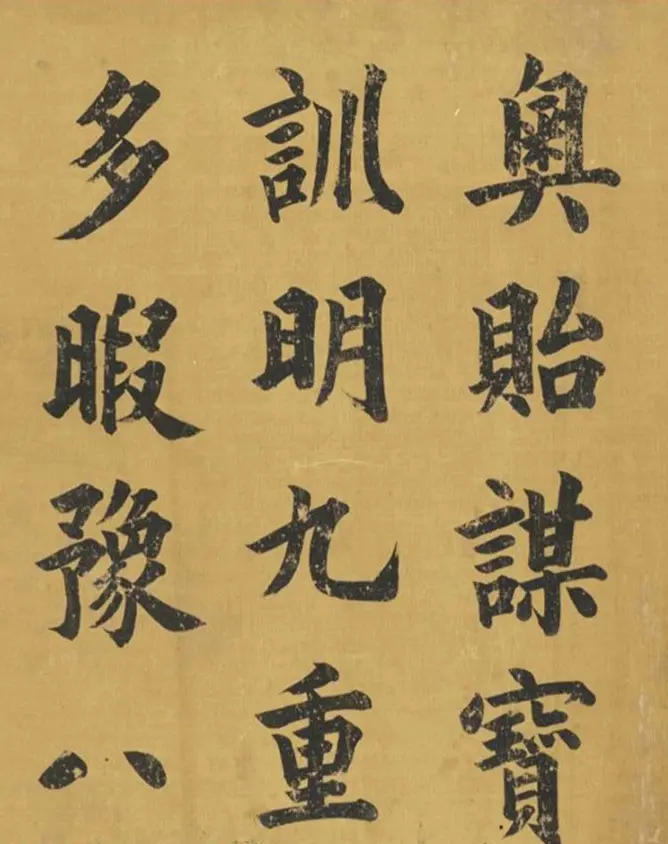 奥貽謀寶
訓明九重
多暇豫八